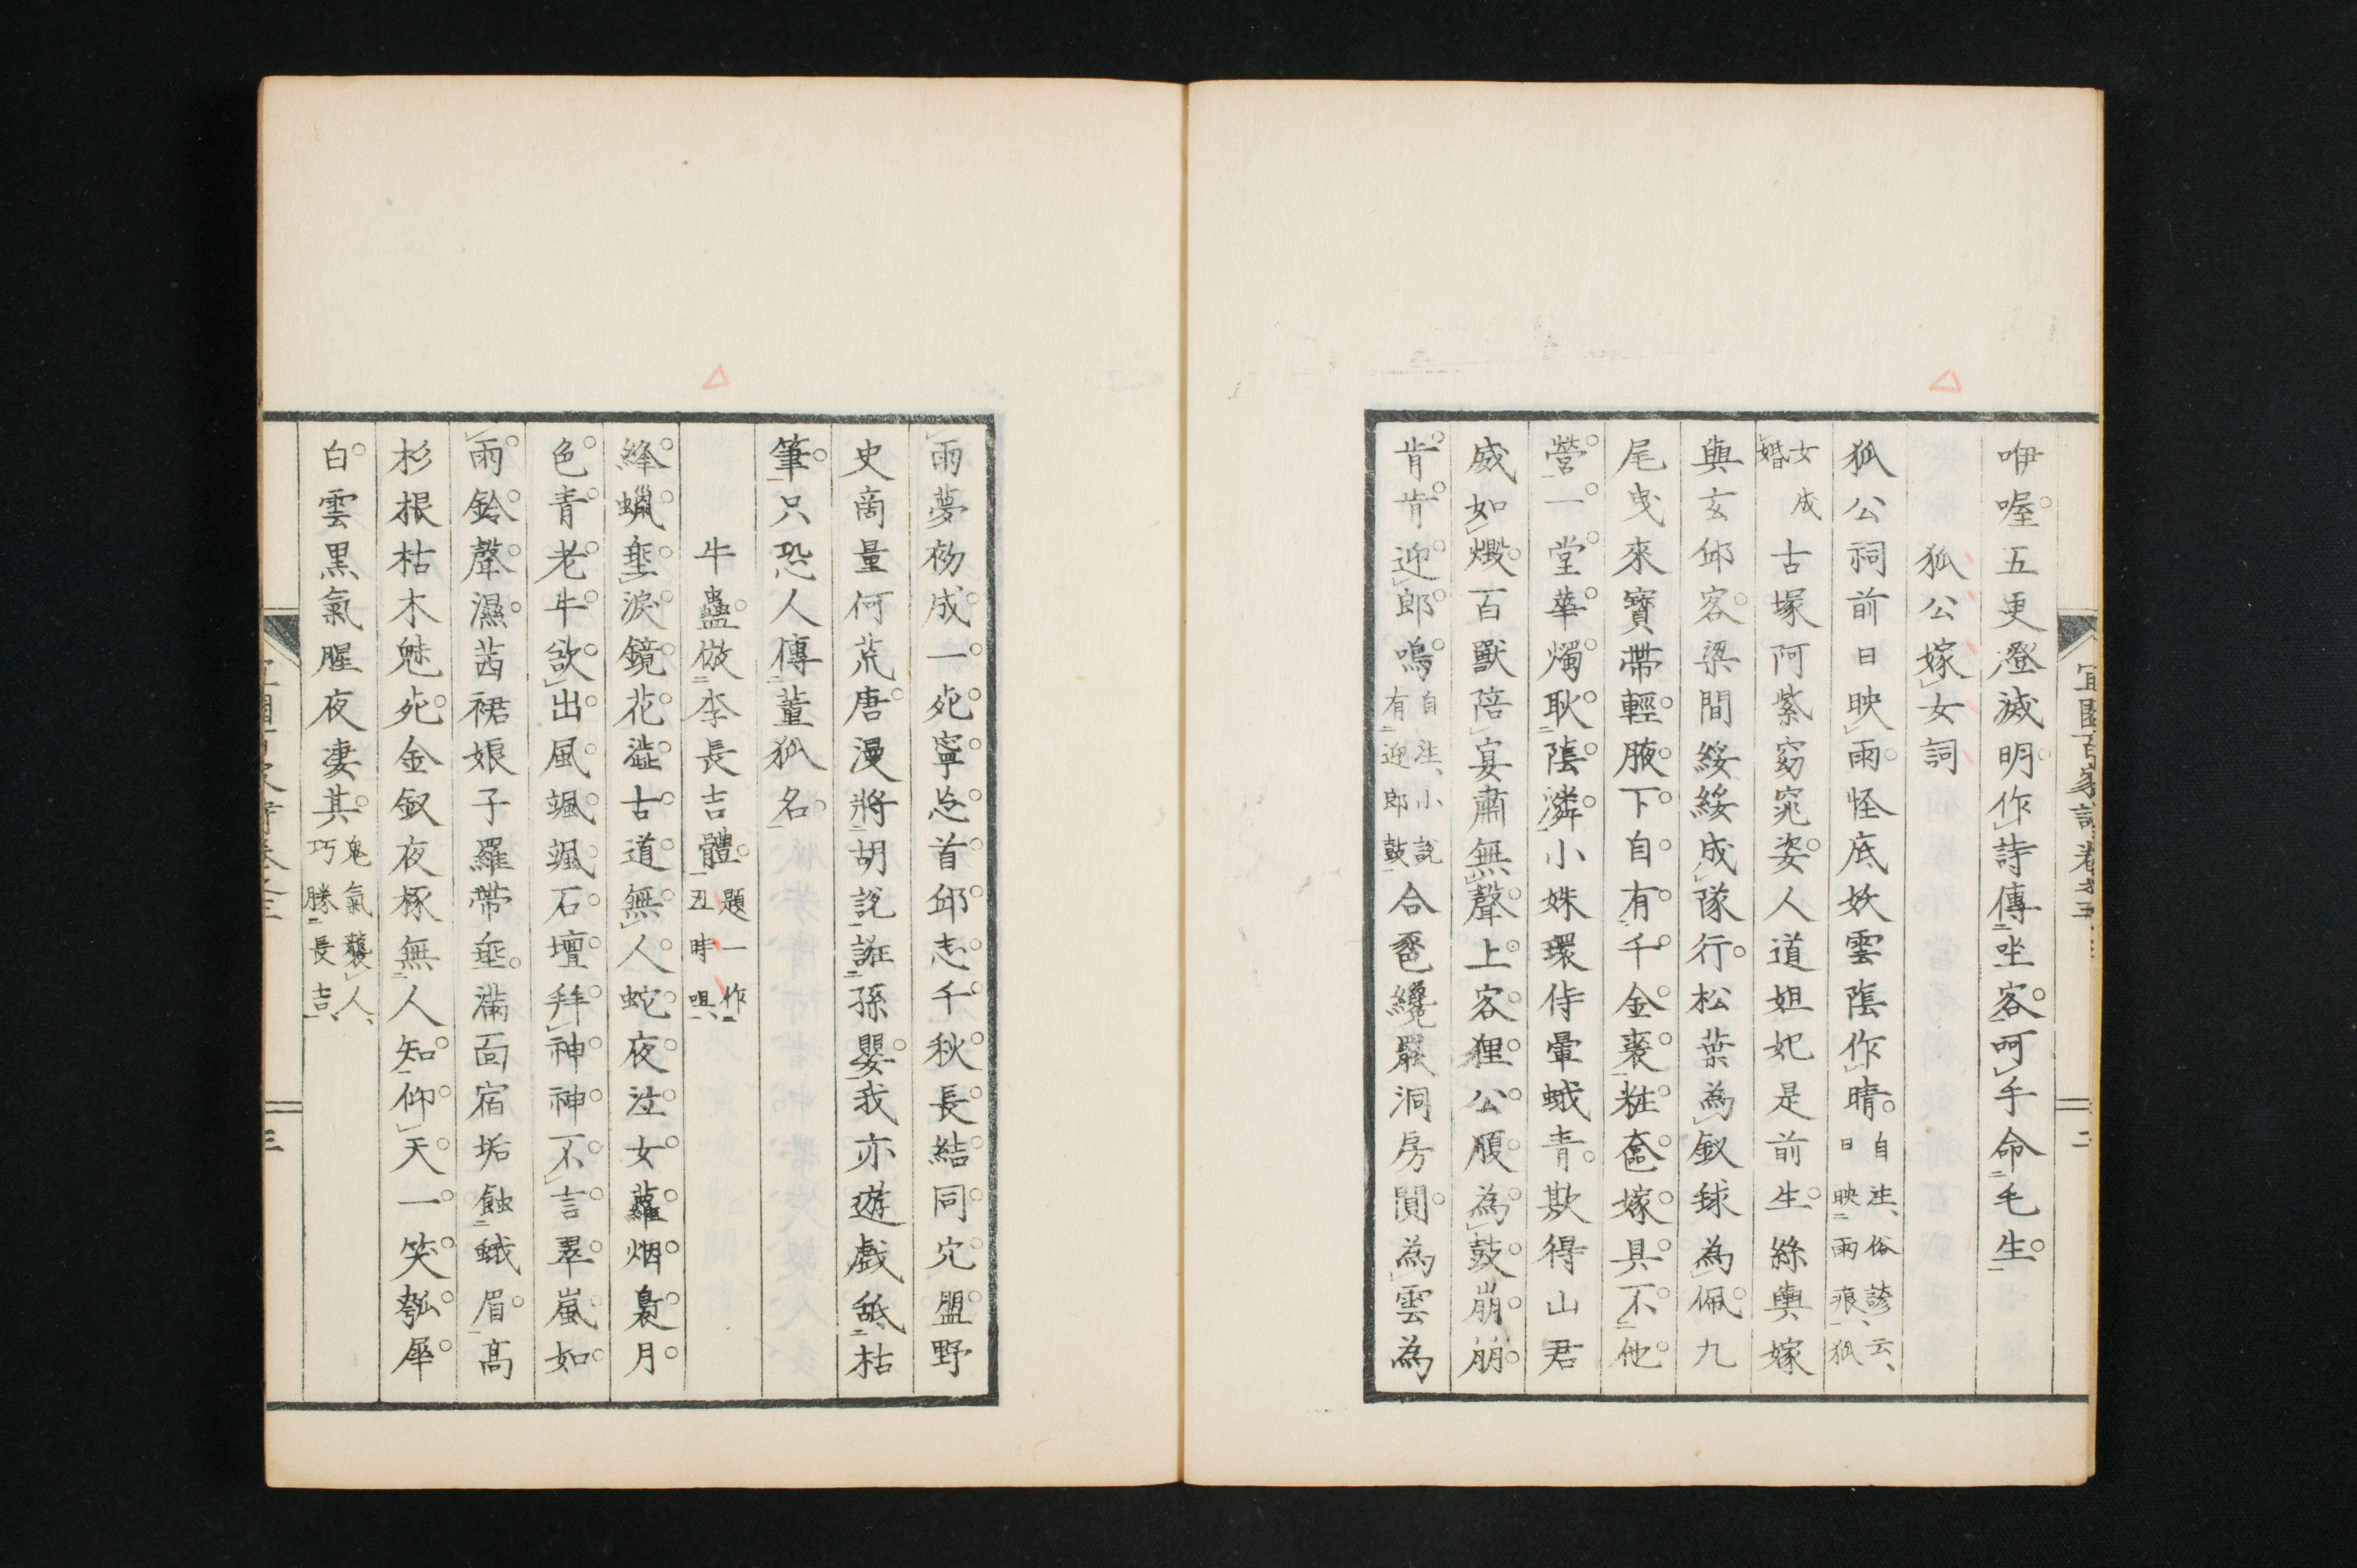 咿喔五更澄滅明作詩傳坐客呵手命毛生
狐公嫁女詞
狐公祠前日映雨怪底妖雲陰作晴自注、俗諺云、日映雨痕狐
女成婚古塚阿紫窈窕姿人道妲妃是前生絲輿嫁
與玄邱客梁間綏綏成隊行松葉為釵球為佩九
尾曳來寶帶輕腋下自有千金裘粧奩嫁具不他
營一堂華燭耿陰潾小姝環侍暈蛾青欺得山君
威如燬百獸陪宴肅無聲上客狸公腹為鼓崩崩
肯肯迎郎鳴自注、小說有迎郎鼓合巹纔罷洞房闃為雲為
雨夢初成一死寧忘首邱志千秋長結同穴盟野
史商量何荒唐漫將胡說誑孫嬰我亦遊戲舐枯
筆只恐人傳董狐名
牛蠱倣李長吉體題一作丑時咀
絳蠟垂淚鏡花澁古道無人蛇夜泣女蘿烟裊月
色青老牛欲出風颯颯石壇拜神神不言翠嵐如
雨鈴聲濕茜裙娘子羅帶垂滿面宿垢蝕蛾眉高
杉根枯木魅死金釵夜椓無人知仰天一笑瓠犀
白雲黑氣腥夜淒其鬼氣襲人、巧勝長吉、
宜園百家詩卷之三
二
三